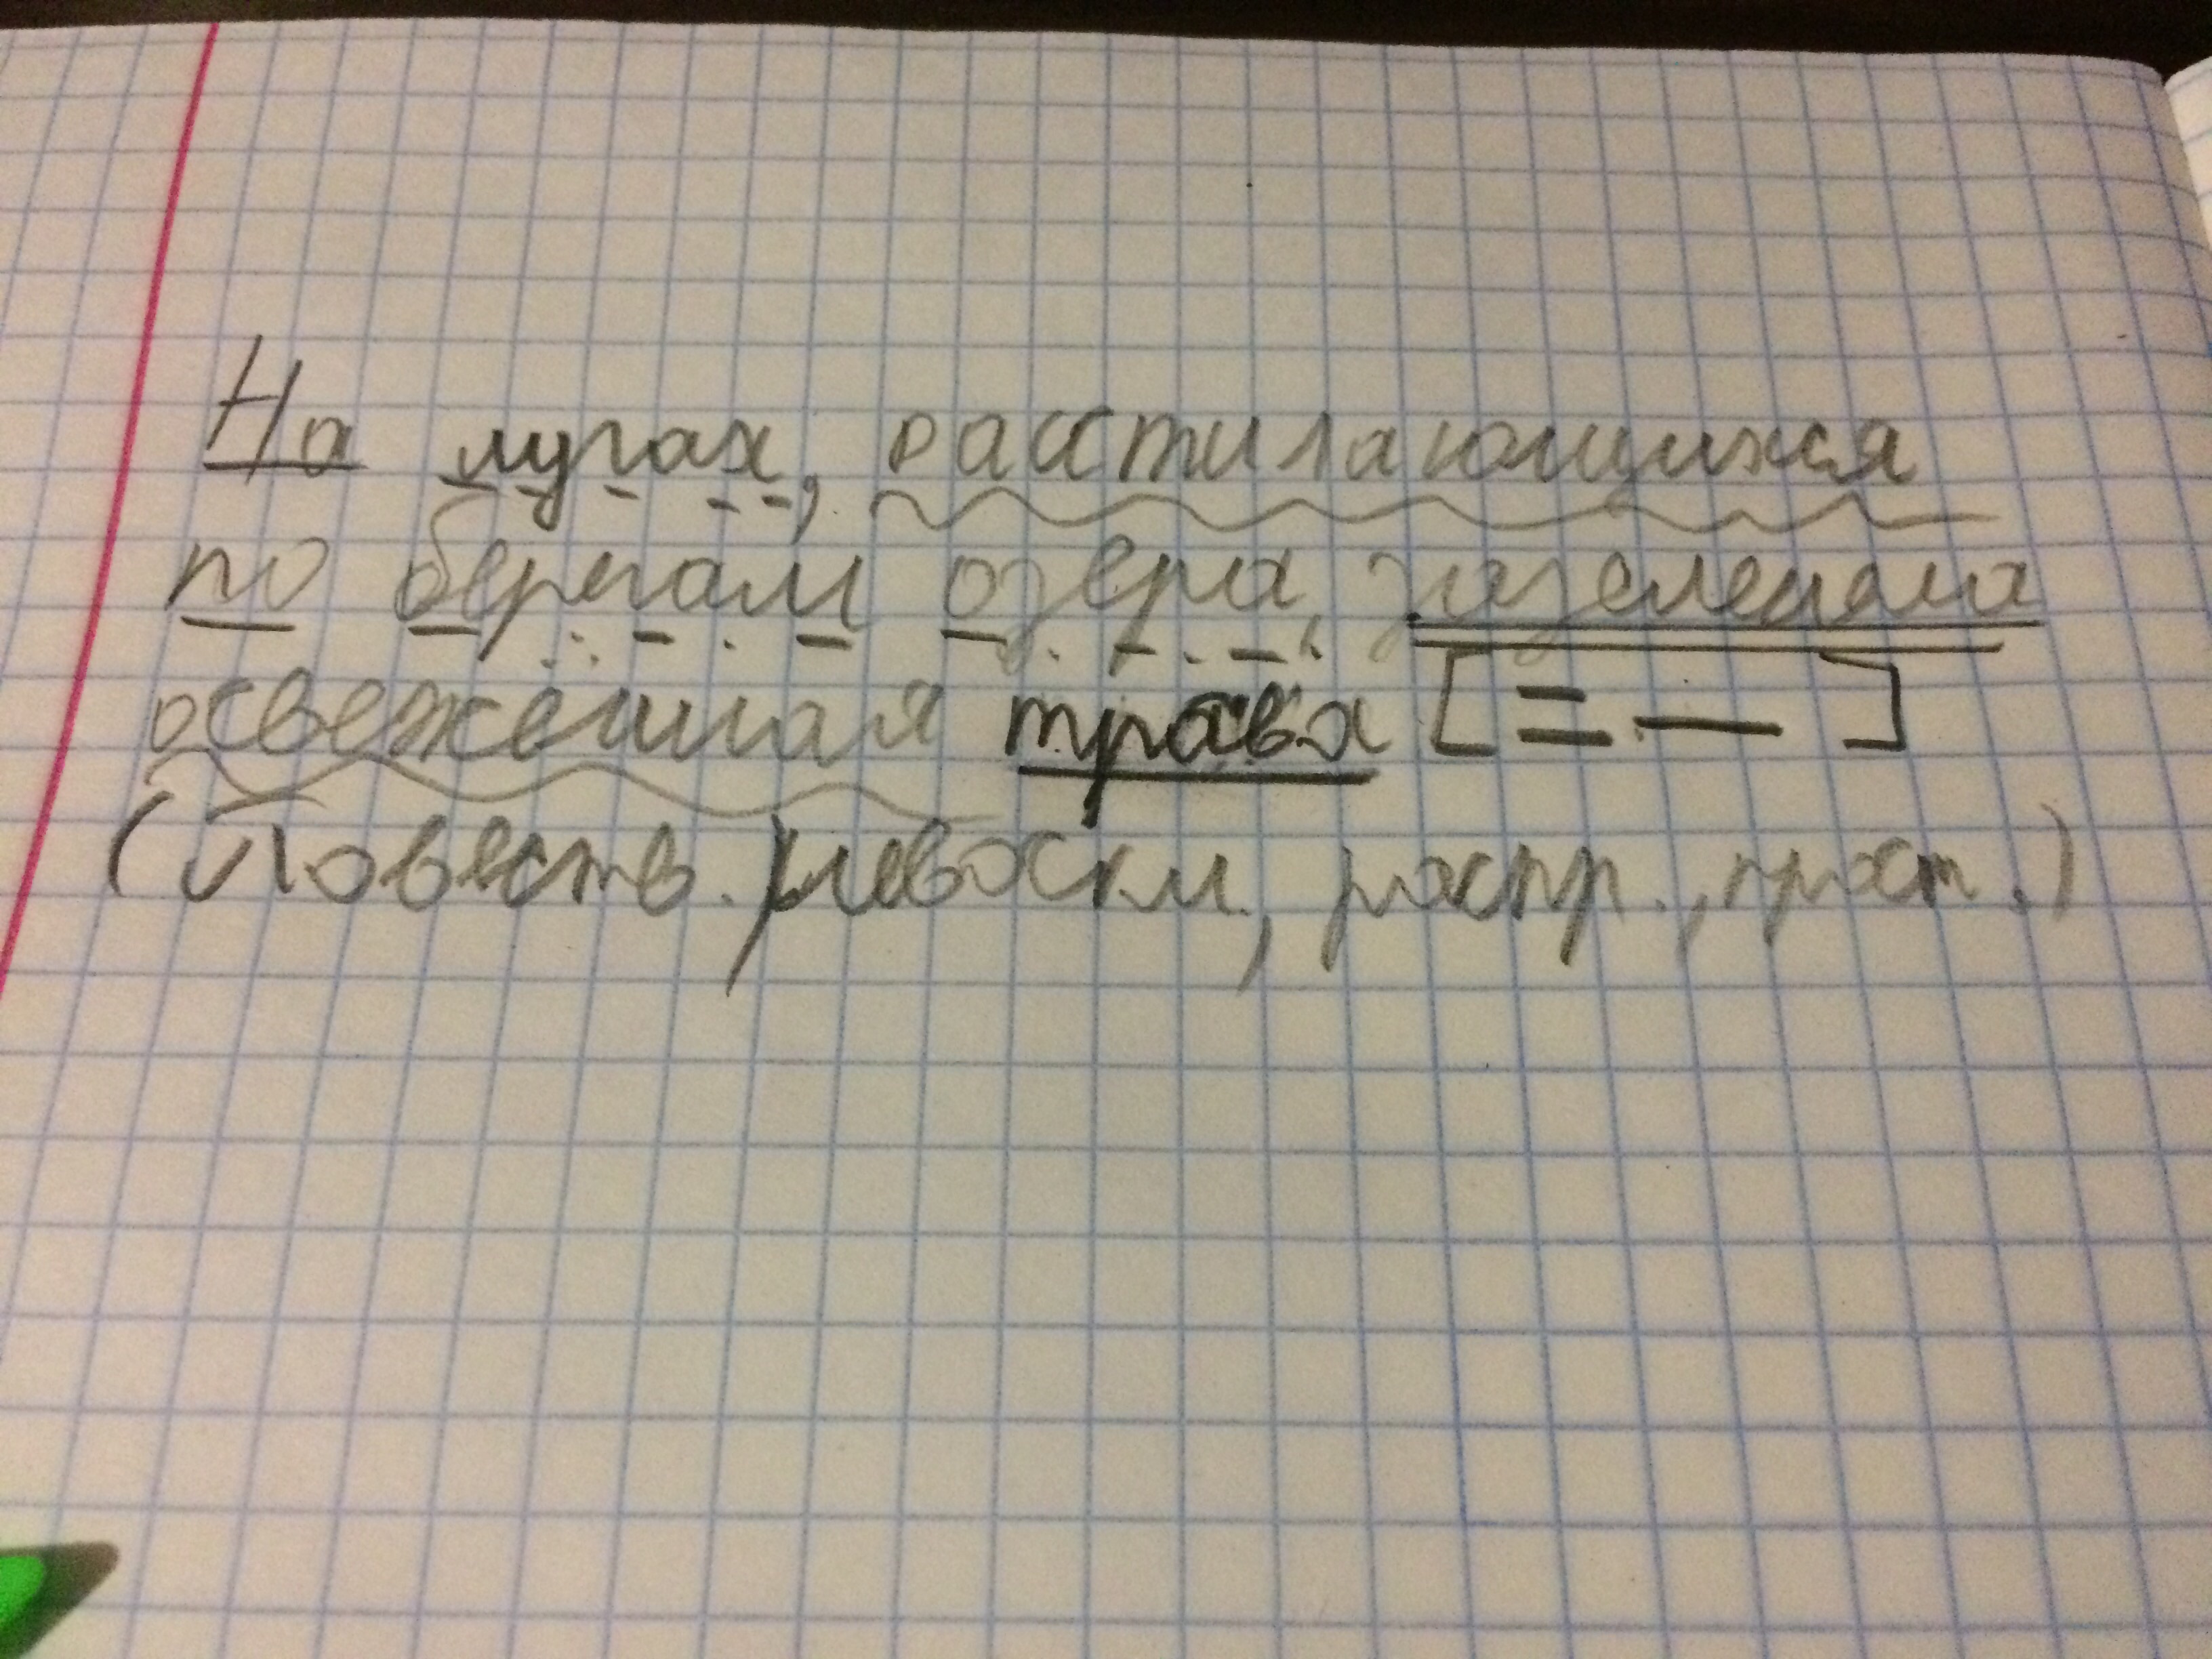 На лугах, расстилающихся
по берегам озера, зазеленела
освежённая трава [= —]
(Повеств., невоскл., распр., прост.)